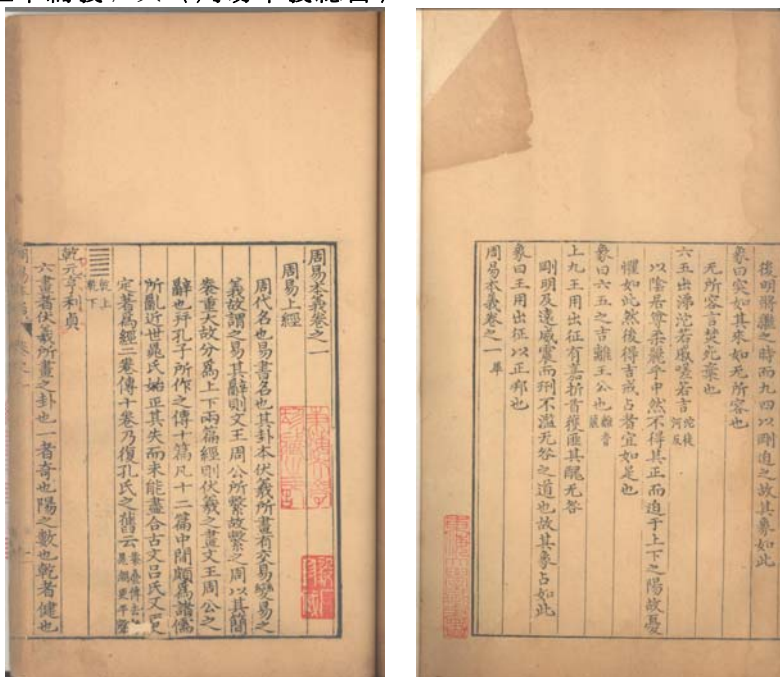 周易本義卷之一
周易上經
周代名也易書名也其卦本伏羲所畫有交易變易之
義故謂之易其辭則文王周公所繫故繫之周以其簡
袠重大故分為上下兩篇經則伏羲之畫文王周公之
辭也并孔子所作之傳十篇凡十二篇中間頗為諸儒
所亂近世晁氏始正其失而未能盡合古文呂氏又更
定著為經二卷傳十卷乃復孔氏之舊云
乾上 乾下
乾元亨利貞
六畫者伏羲所畫之卦也一者奇也陽之數也乾者健也
後明將繼之時而九四以剛迫之故其象如此
象曰突如其來如无所容也
无所容言焚死棄也
六五出涕沱若戚嗟若吉 沱徒河反
以陰居尊柔麗乎中然不得其正而迫于上下之陽故憂
懼如此然後得吉戒占者宜如是也
象曰六五之吉離王公也 離音麗
上九王用出征有嘉折首獲匪其醜无咎
剛明及遠威震而刑不濫无咎之道也故其象占如此
象曰王用出征以正邦也
周易本義卷之一 畢